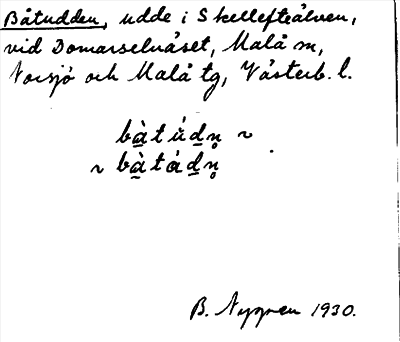 Båtudden, udde i Skellefteälven,
vid Domarselnäset, Malå sn,
Norsjö och Malå tg, Västerb. l.
bà̲túd̲n̥ ~
~ bà̲tád̲n̥
B. Nygren 1930.